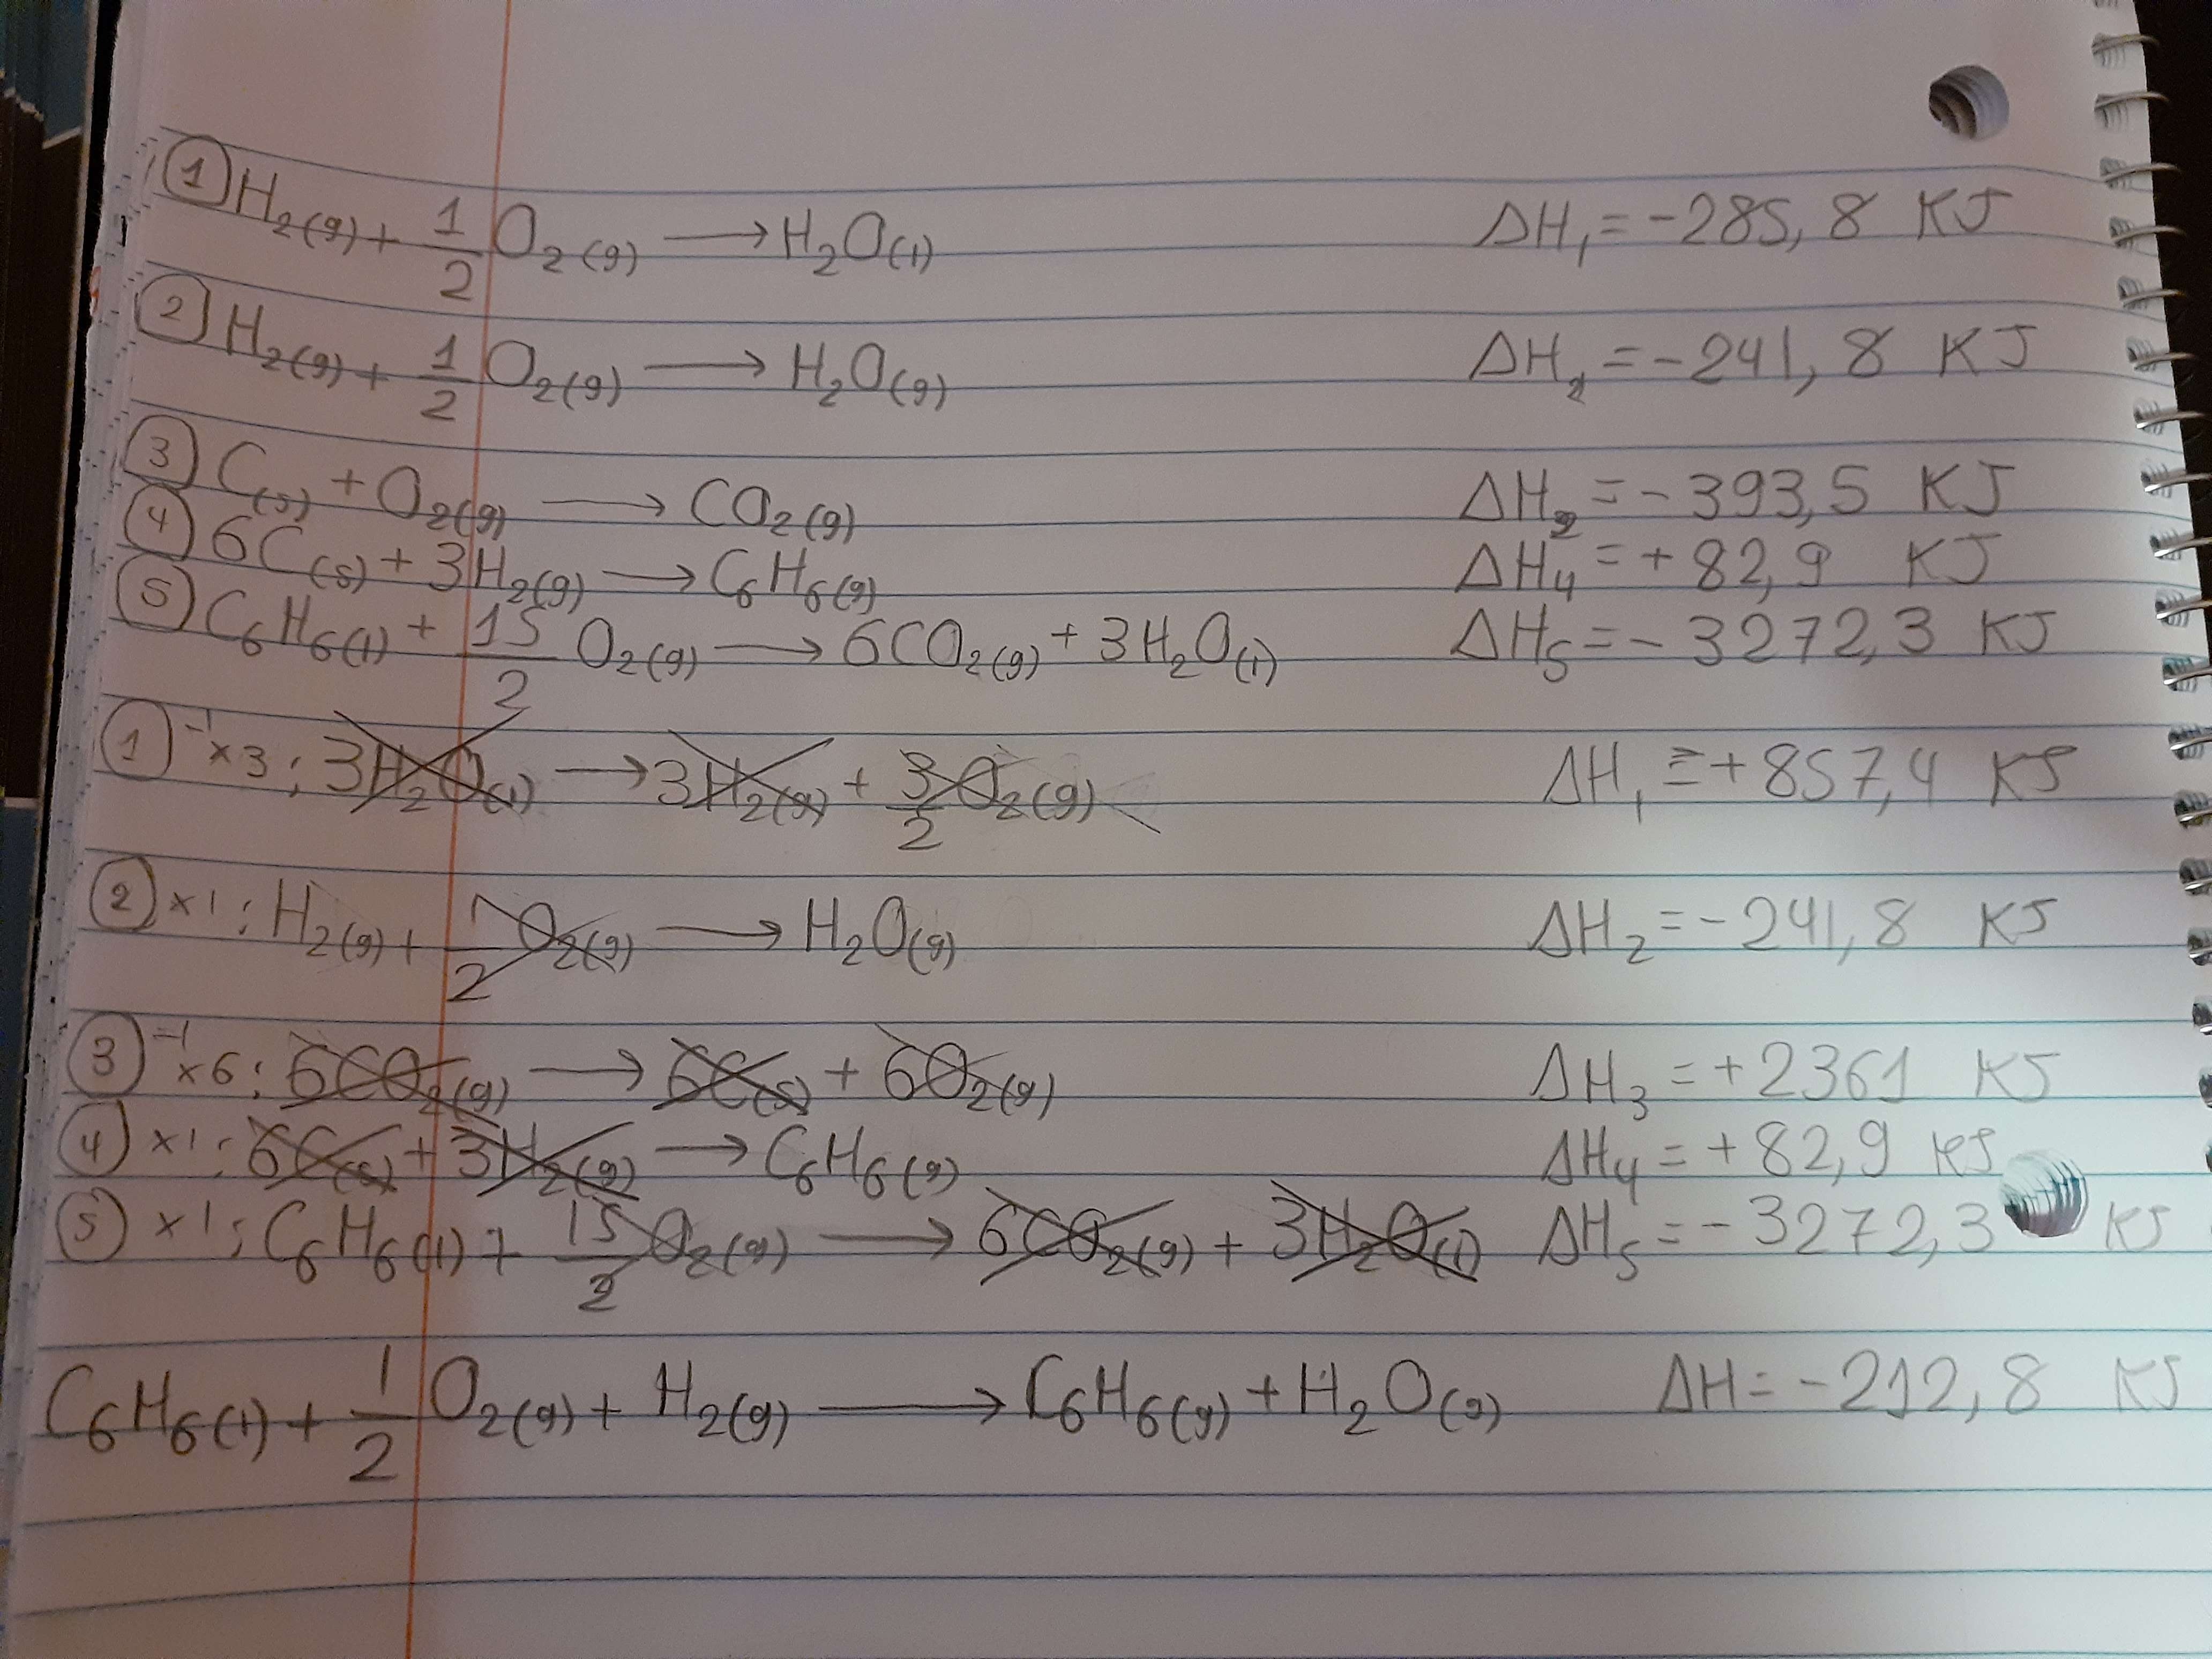 ① H₂(g) + 1/2 O₂(g) → H₂O(l) ΔH₁ = -285,8 KJ
② H₂(g) + 1/2 O₂(g) → H₂O(g) ΔH₂ = -241,8 KJ
③ C(s) + O₂(g) → CO₂(g) ΔH₃ = -393,5 KJ
④ 6C(s) + 3H₂(g) → C₆H₆(g) ΔH₄ = +82,9 KJ
⑤ C₆H₆(l) + 15/2 O₂(g) → 6CO₂(g) + 3H₂O(l) ΔH₅ = -3272,3 KJ
①⁻¹ x3: 3H₂O(l) → 3H₂(g) + 3/2 O₂(g) ΔH₁ = +857,4 KJ
② x1: H₂(g) + 1/2 O₂(g) → H₂O(g) ΔH₂ = -241,8 KJ
③⁻¹ x6: 6CO₂(g) → 6C(s) + 6O₂(g) ΔH₃ = +2361 KJ
④ x1: 6C(s) + 3H₂(g) → C₆H₆(g) ΔH₄ = +82,9 KJ
⑤ x1: C₆H₆(l) + 15/2 O₂(g) → 6CO₂(g) + 3H₂O(l) ΔH₅ = -3272,3 KJ
C₆H₆(l) + 1/2 O₂(g) + H₂(g) → C₆H₆(g) + H₂O(g) ΔH = -212,8 KJ